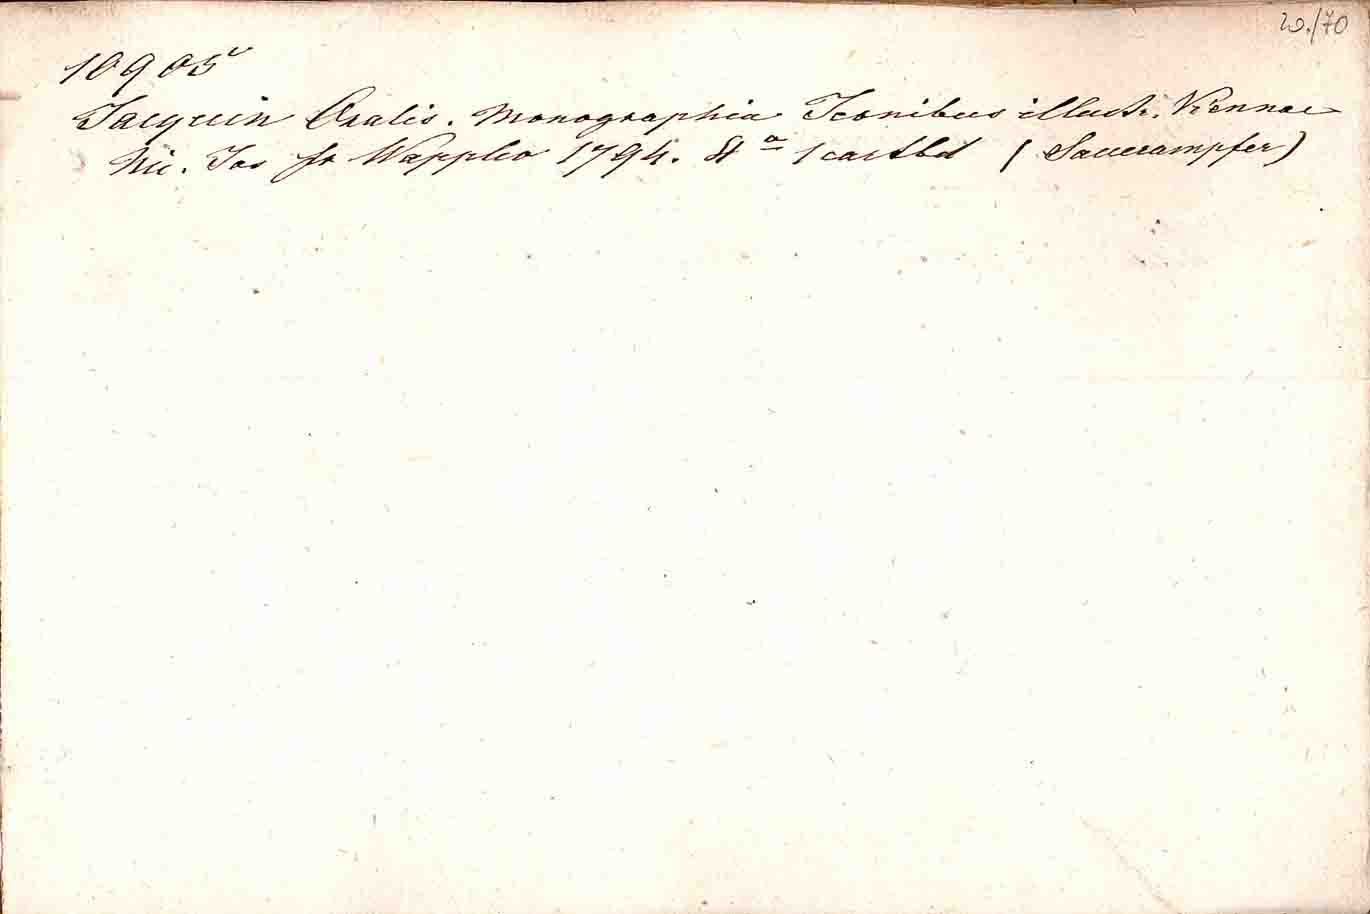 w./70
10905
Jacquin Oxalis. Monographia Iconibus illustr. Viennae
Nic. Jos fr Wappler 1794. 4° 1 cartbd (Sauerampfer)